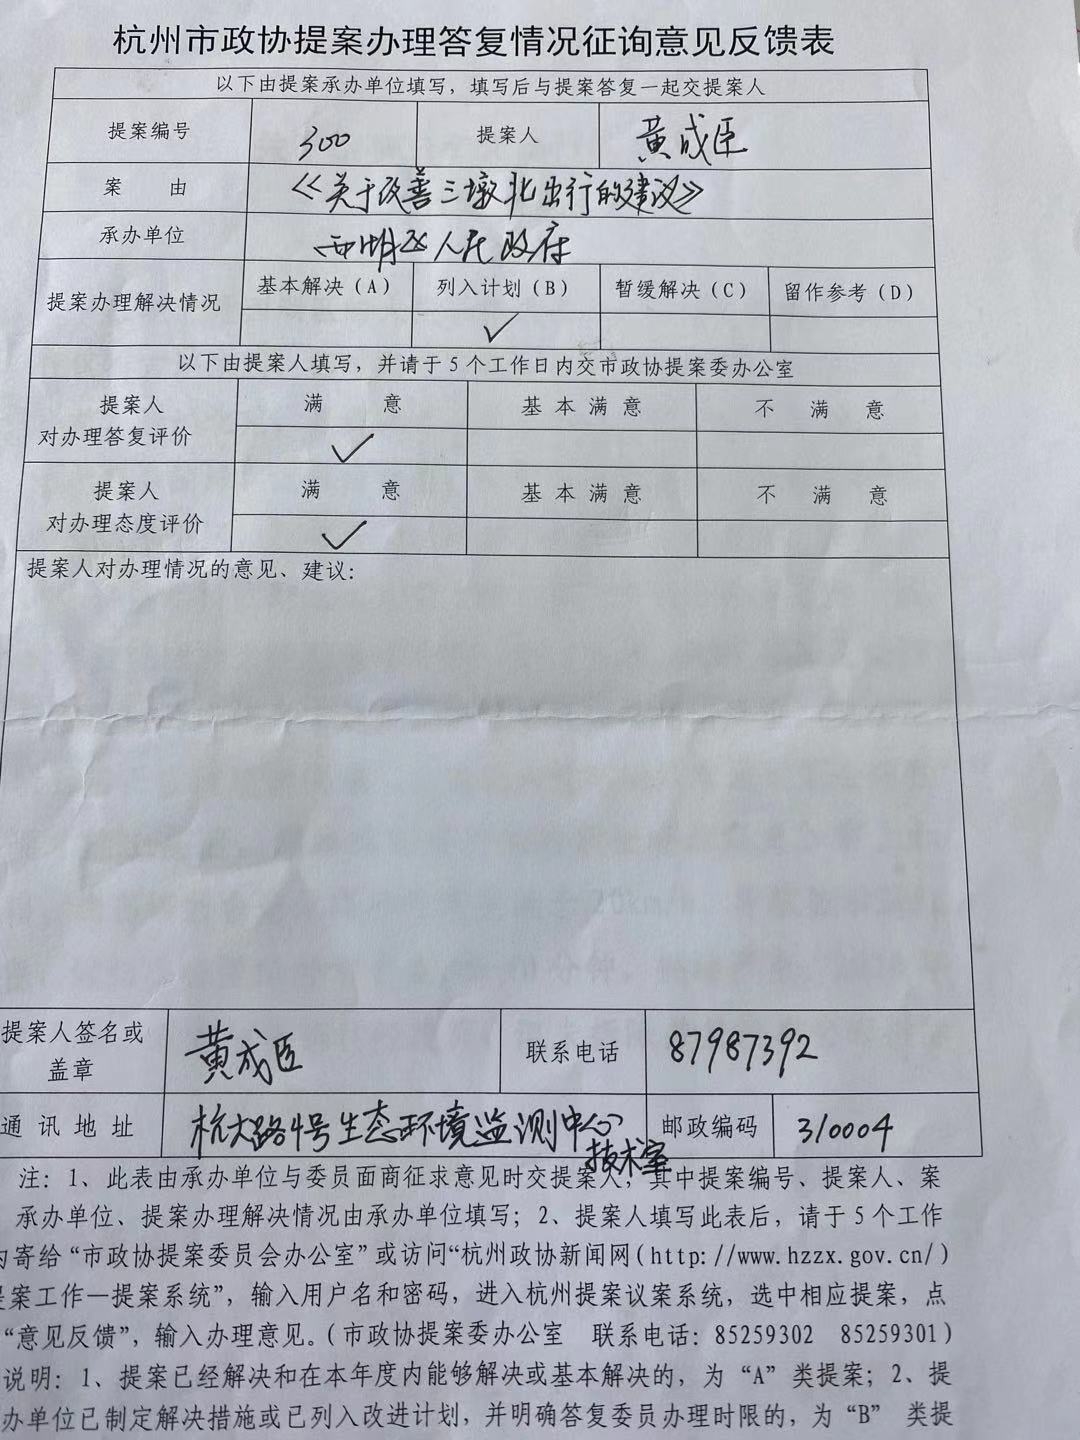 杭州市政协提案办理答复情况征询意见反馈表
以下由提案承办单位填写，填写后与提案答复一起交提案人
提案编号 300 提案人 黄成臣
案 由 《关于改善三墩北出行的建议》
承办单位 西湖区人民政府
提案办理解决情况 基本解决（A） 列入计划（B） 暂缓解决（C） 留作参考（D）
✓
以下由提案人填写，并请于5个工作日内交市政协提案委办公室
提案人 满 意 基本满意 不 满 意
对办理答复评价 ✓
提案人 满 意 基本满意 不 满 意
对办理态度评价 ✓
提案人对办理情况的意见、建议：
提案人签名或 黄成臣 联系电话 87987392
盖章
通讯地址 杭大路4号生态环境监测中心 邮政编码 310004
技术室
注：1、此表由承办单位与委员面商征求意见时交提案人，其中提案编号、提案人、案
承办单位、提案办理解决情况由承办单位填写；2、提案人填写此表后，请于5个工作
内寄给“市政协提案委员会办公室”或访问“杭州政协新闻网（http://www.hzzx.gov.cn/）
提案工作—提案系统”，输入用户名和密码，进入杭州提案议案系统，选中相应提案，点
“意见反馈”，输入办理意见。（市政协提案委办公室 联系电话：85259302 85259301）
说明：1、提案已经解决和在本年度内能够解决或基本解决的，为“A”类提案；2、提
办单位已制定解决措施或已列入改进计划，并明确答复委员办理时限的，为“B” 类提